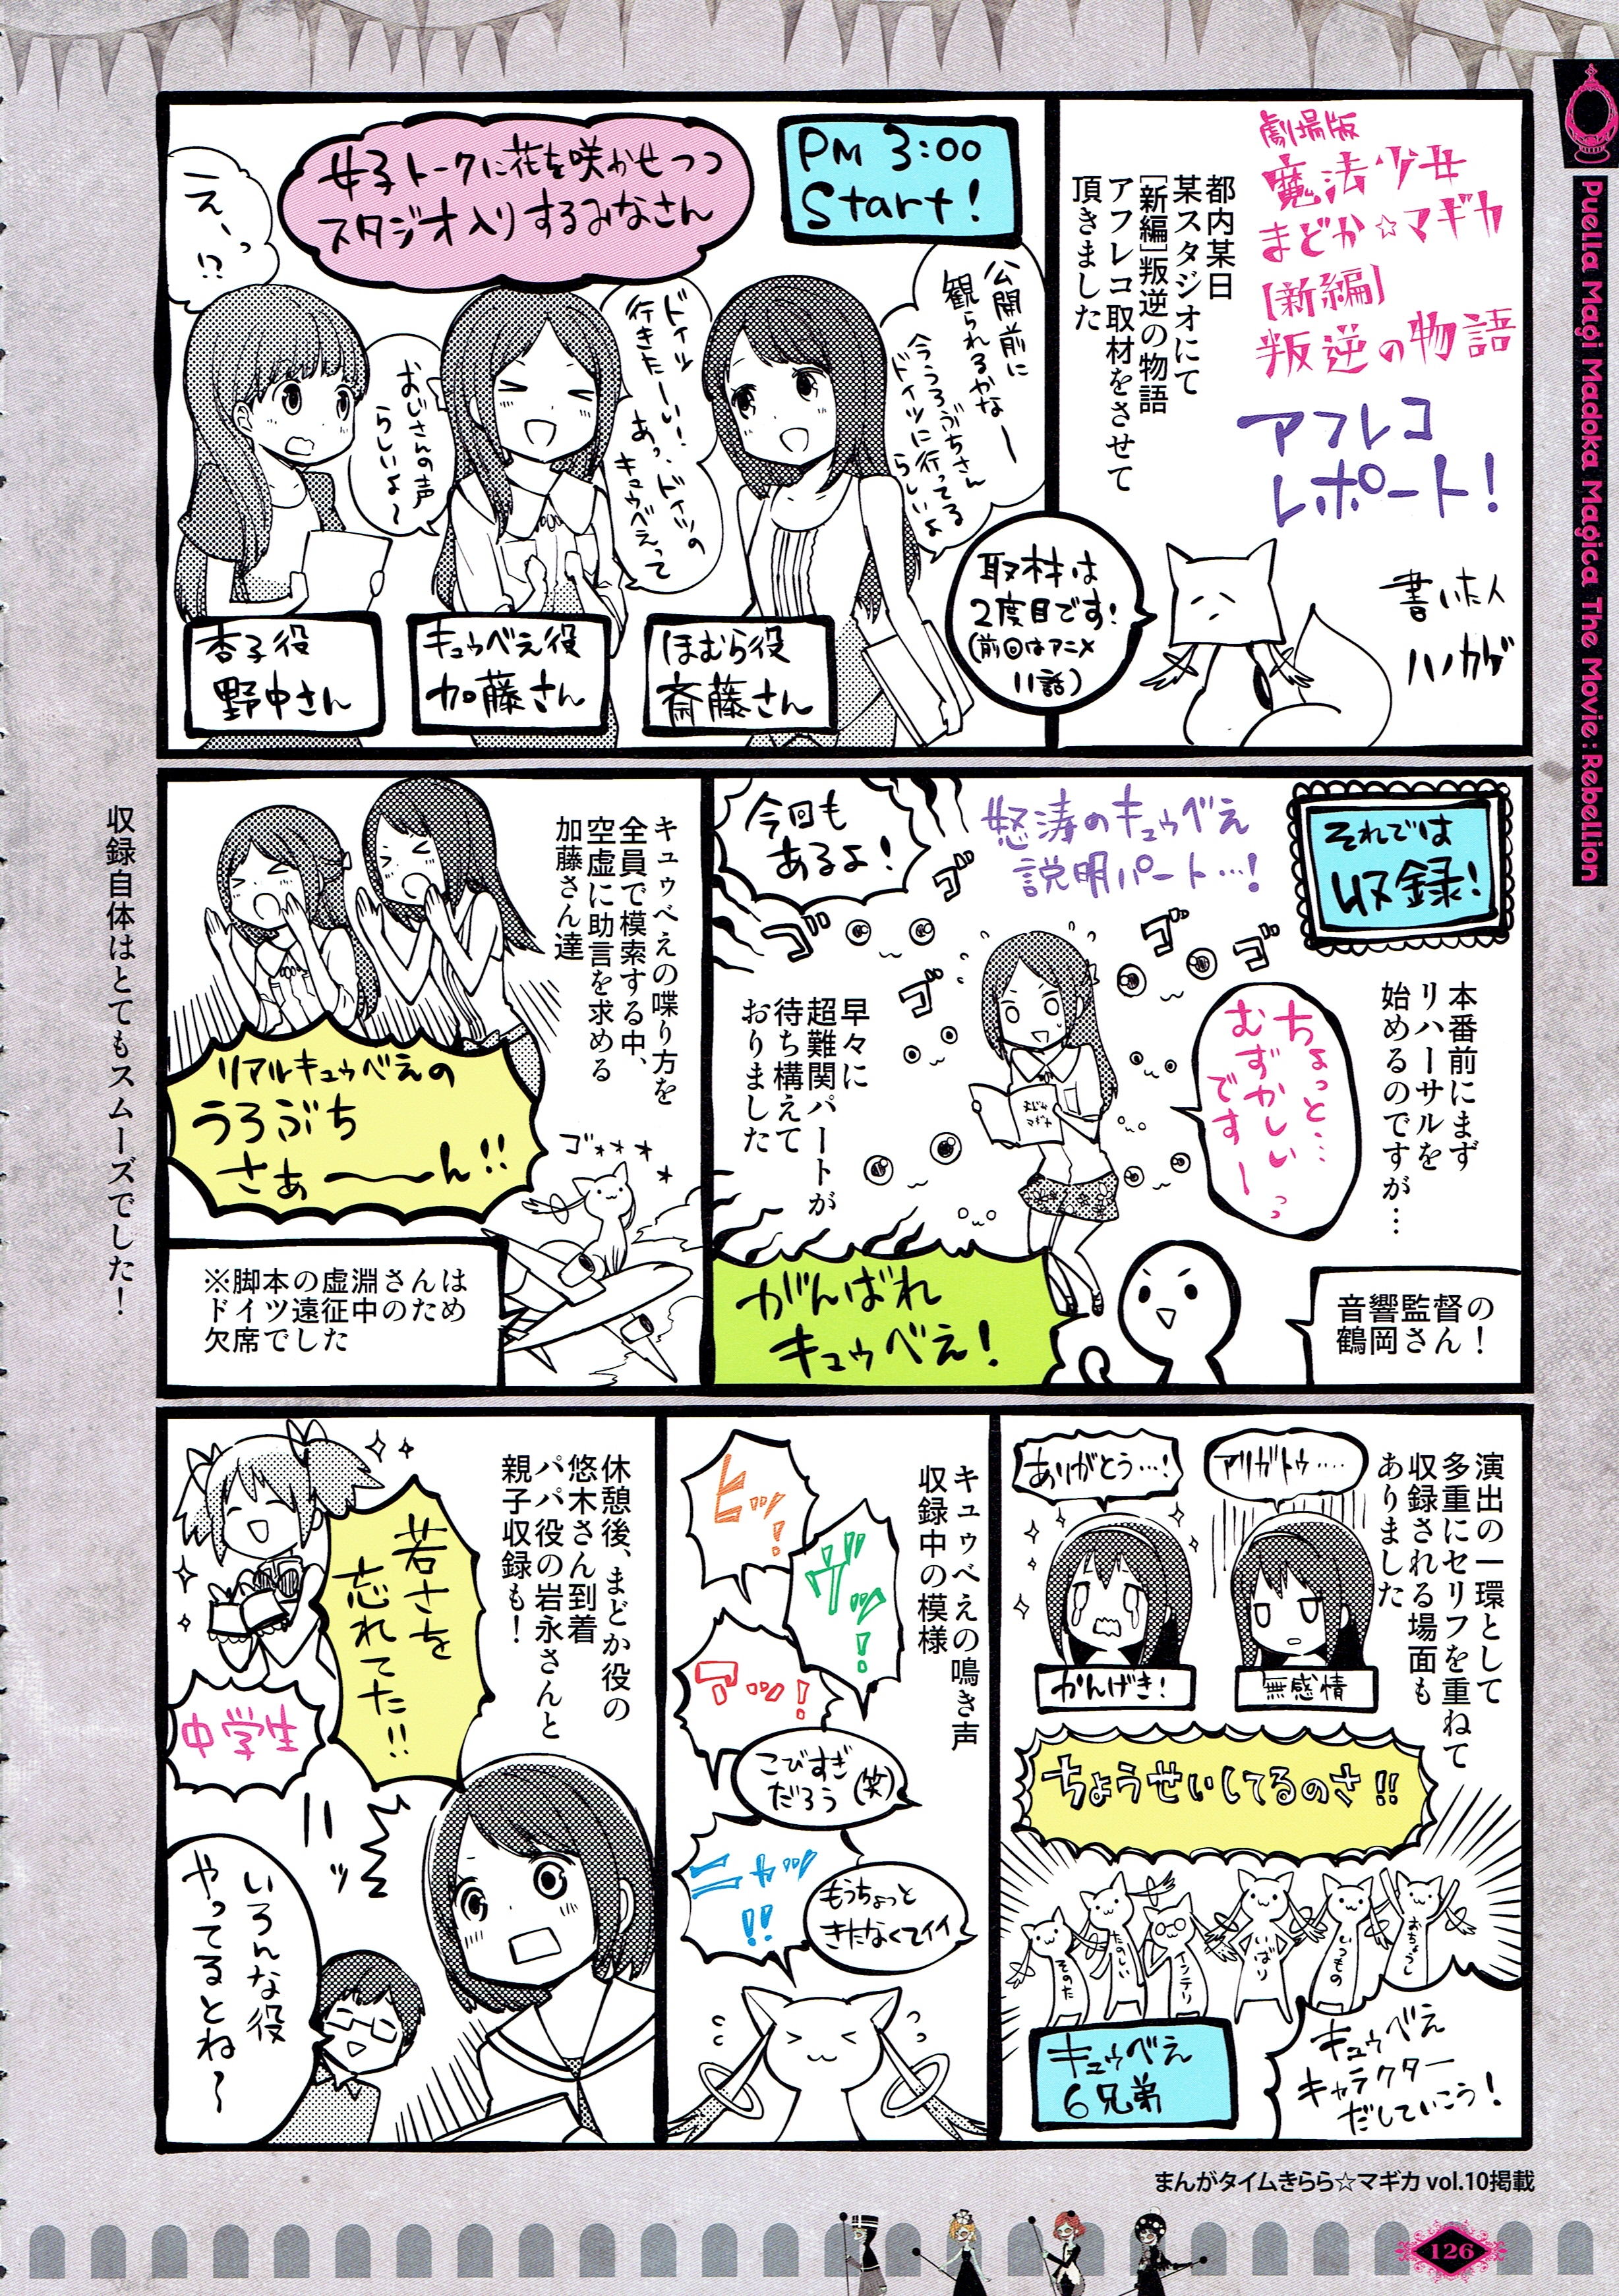 Puella Magi Madoka Magica The Movie : Rebellion
劇場版
魔法少女
まどか☆マギカ
[新編]
叛逆の物語
アフレコ
レポート!
都内某日
某スタジオにて
[新編]叛逆の物語
アフレコ取材をさせて
頂きました
書いた人
ハノカゲ
取材は
2度目です!
(前回はアニメ
11話)
PM 3:00
Start!
女子トークに花を咲かせつつ
スタジオ入りするみなさん
公開前に
観られるかなー
今うろぶちさん
ドイツに行ってる
らしいよ
ドイツ
行きたーい!
あっ、ドイツの
キュゥべえって
おじさんの声
らしいよ〜
えーっ
!?
ほむら役
斎藤さん
キュゥべえ役
加藤さん
杏子役
野中さん
それでは
収録!
本番前にまず
リハーサルを
始めるのですが…
怒涛のキュゥべえ
説明パート…!
今回も
あるよ!
ゴ
ゴ
ゴ
ゴ
ゴ
ちょっと…
むずかしいっ
ですーっ
早々に
超難関パートが
待ち構えて
おりました
音響監督の
鶴岡さん!
がんばれ
キュゥべえ!
キュゥべえの喋り方を
全員で模索する中、
空虚に助言を求める
加藤さん達
リアルキュゥべえの
うろぶち
さぁーーん!!
ゴォォォォ
※脚本の虚淵さんは
ドイツ遠征中のため
欠席でした
収録自体はとてもスムーズでした!
演出の一環として
多重にセリフを重ねて
収録される場面も
ありました
アリガトゥ……
ありがとう…!
無感情
かんげき!
ちょうせいしてるのさ!!
おちょうし
いつもの
いばり
インテリ
たのしい
そのた
キュゥべえ
キャラクター
だしていこう!
キュゥべえ
6兄弟
キュゥべえの鳴き声
収録中の模様
ヒッ!
ヴッ!
アッ!
こびすぎ
だろう(笑)
ニャッ
!!
もうちょっと
きたなくてイイ
休憩後、まどか役の
悠木さん到着
パパ役の岩永さんと
親子収録も!
若さを
忘れてた!!
中学生
ハッ
いろんな役
やってるとね〜
まんがタイムきらら☆マギカ vol.10掲載
126